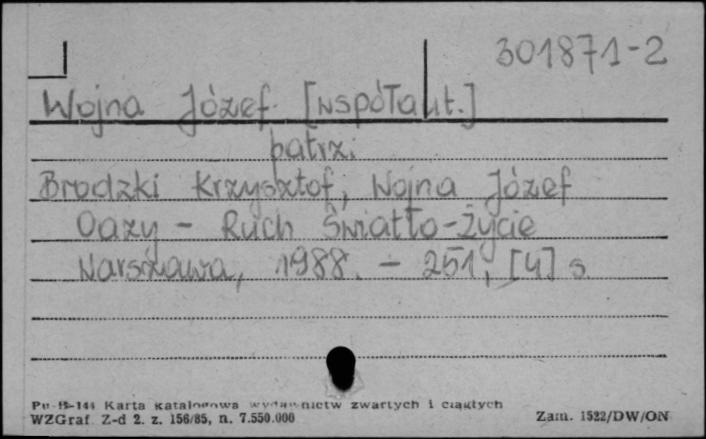 301871-2
Wojna Józef [współaut.]
patrz:
Brodzki Krzysztof, Wojna Józef
Oazy - Ruch Światło-Życie
Warszawa, 1988. - 251, [4] s.
Pu-B-144 Karta katalogowa wydawnictw zwartych i ciągłych
WZGraf. Z-d 2. z. 156/85, n. 7.550.000
Zam. 1522/DW/ON